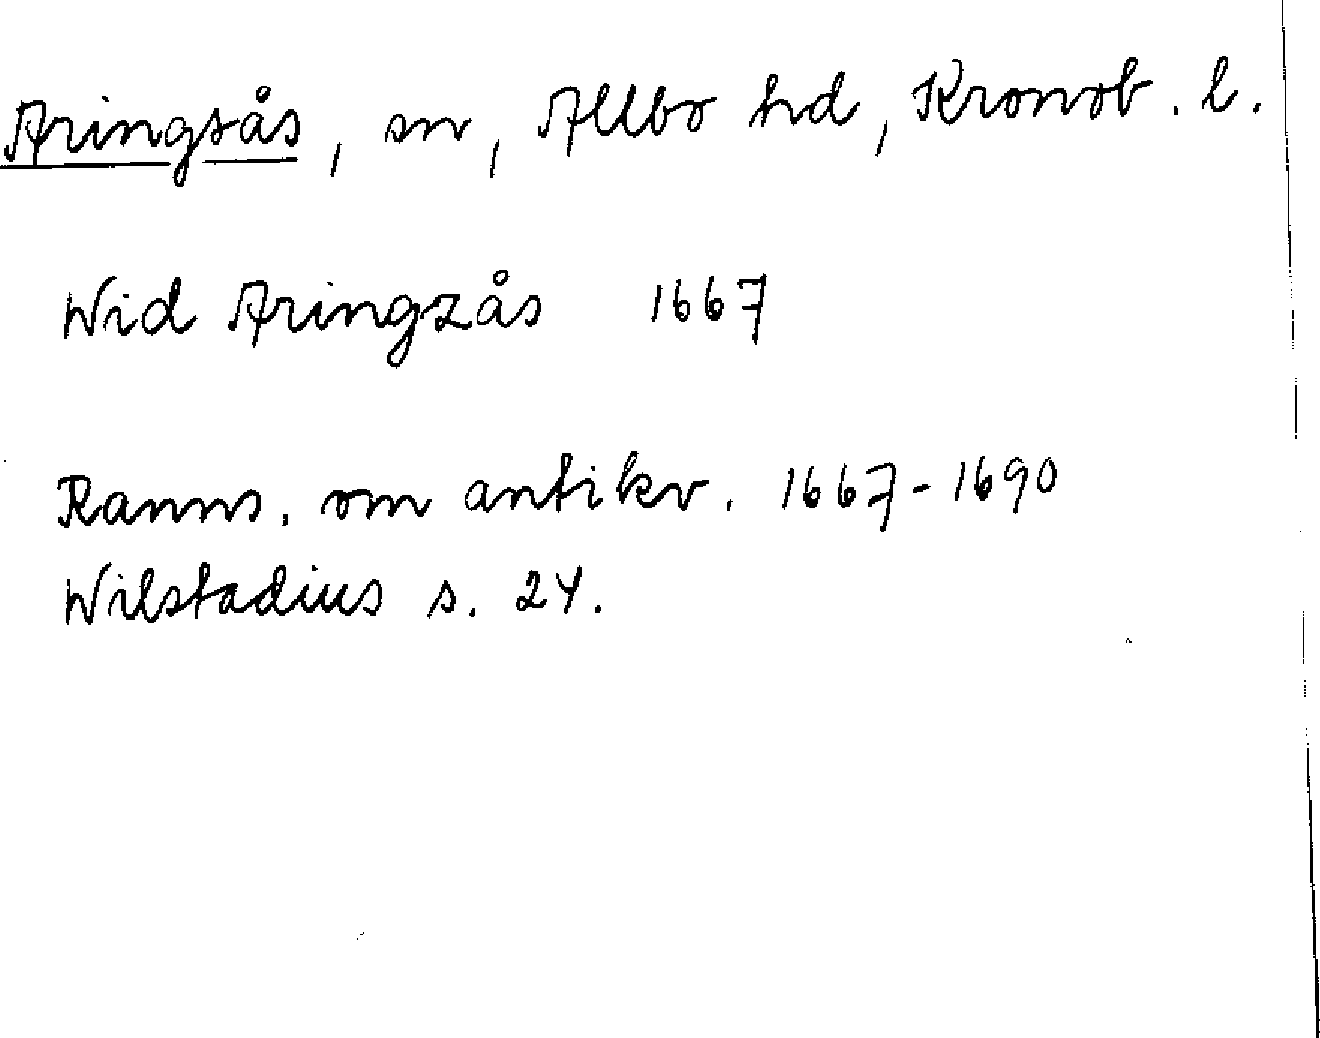 Aringsås, sn, Allbo hd, Kronob. l.
Wid Aringzås 1667
Ranns. om antikv. 1667-1690
Wilstadius s. 24.